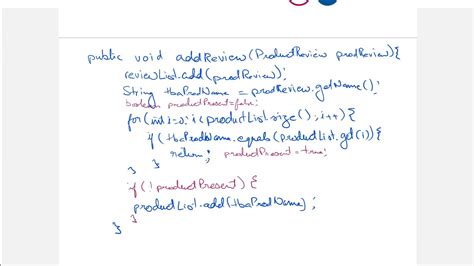 public void addReview(ProductReview prodReview){
reviewList.add(prodReview);
String tbaProdName = prodReview.getName();
boolean productPresent=false;
for(int i=0; i<productList.size(); i++){
if(tbaProdName.equals(productList.get(i)){
return; productPresent=true;
}
}
if(!productPresent) {
productList.add(tbaProdName);
}
}